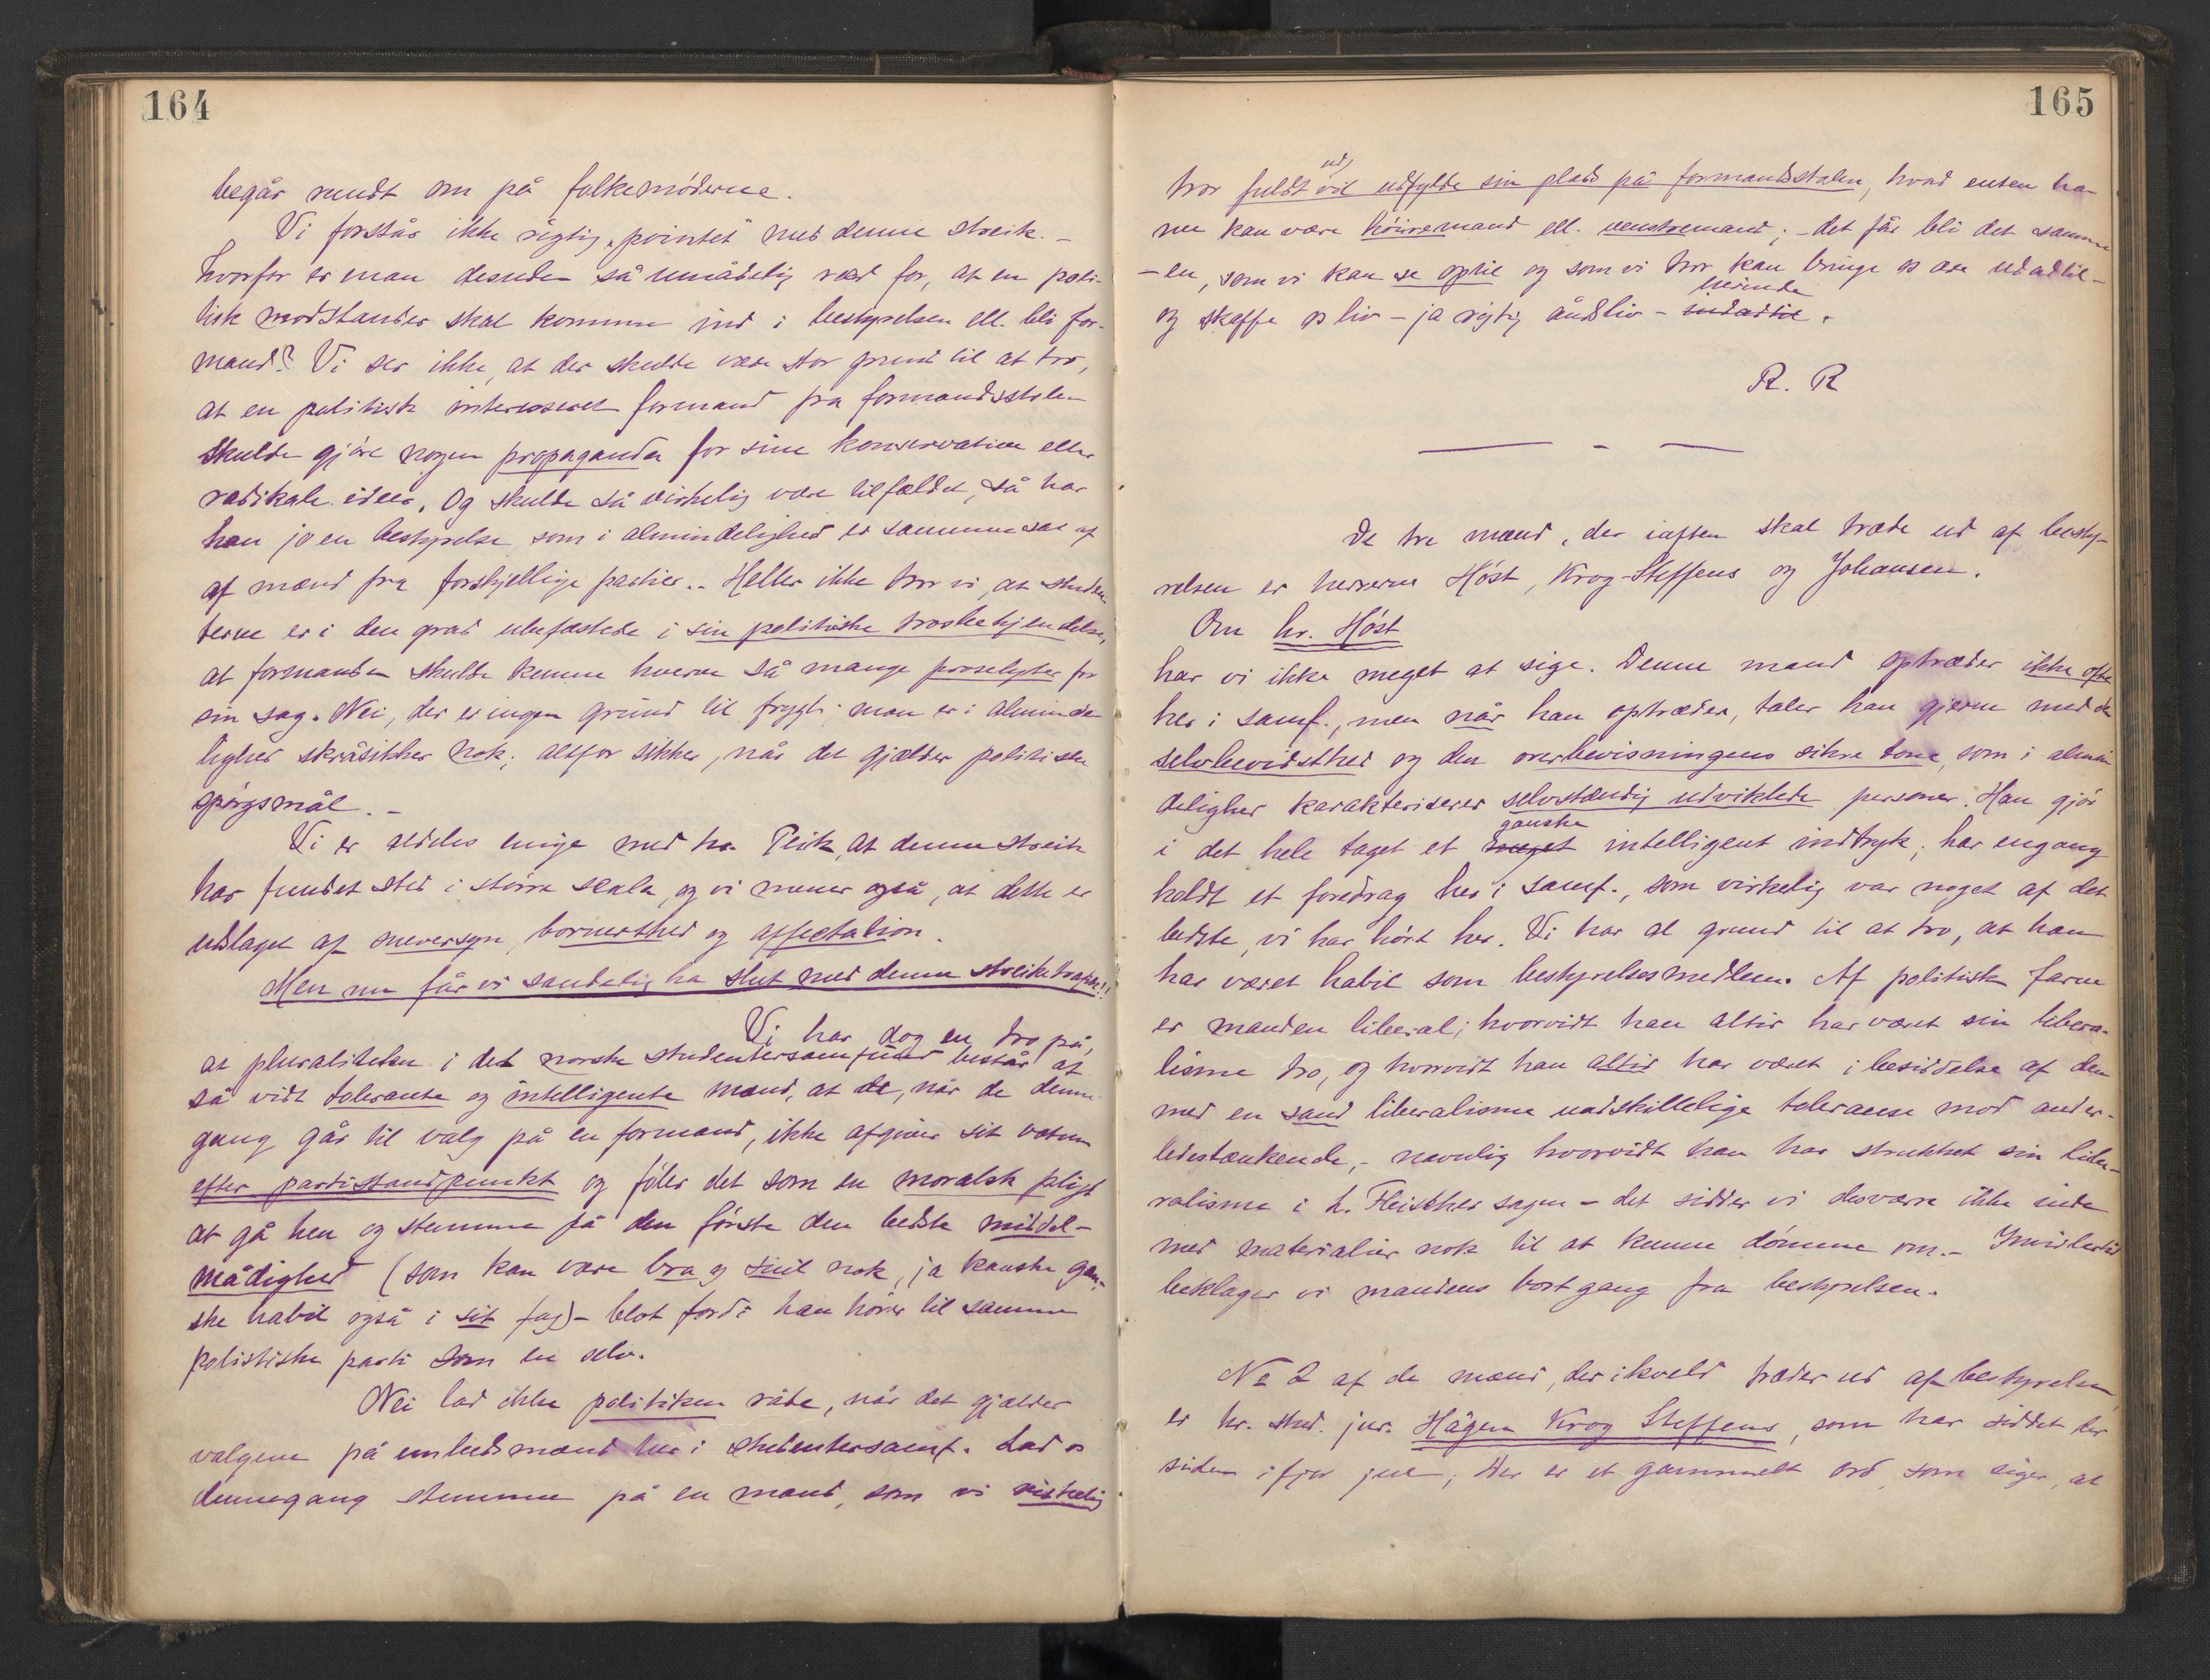 164
begår rundt om på folkemøderne.
Vi forstår ikke rigtig "pointet" med denne streik. –
Hvorfor er man desuden så umådelig ræd for, at en poli-
tisk modstander skal komme ind i bestyrelsen ell. bli for-
mand? Vi ser ikke, at der skulde være stor grund til at tro,
at en politisk interesseret formand fra formandsstolen
skulde gjøre nogen propaganda for sine konservative eller
radikale ideer. Og skulde så virkelig være tilfældet, så har
han jo en bestyrelse som i almindelighed er sammensat af
af mænd fra forskjellige partier.. Heller ikke tror vi, at studen-
terne er i den grad ubefæstede i sin politiske trosbekjendelse,
at formanden skulde kunne hverve så mange proselyter for
sin sag. Nei, der er ingen grund til frygt; man er i alminde-
lighed skråsikker nok; altfor sikker, når det gjælder politiske
spørgsmål. –
Vi er aldeles enige med hr. Peik, at denne streik
har fundet sted i større scala, og vi mener også, at dette er
udslaget af sneversyn, bornerthed og affectation.
Men nu får vi sandelig ha slut med denne streiketrafik!!
Vi har dog en tro på,
at pluraliteten i det norske studentersamfund består af
så vidt tolerante og intelligente mænd, at de, når de denne-
gang går til valg på en formand, ikke afgiver sit votum
efter partistandpunkt og føler det som en moralsk pligt
at gå hen og stemme på den første den bedste middel-
mådighed (som kan være bra og snil nok, ja kanske gan-
ske habil også i sit fag) – blot fordi han hører til samme
politiske parti som en selv.
Nei lad ikke politiken råde, når det gjælder
valgene på embedsmænd her i studentersamf. Lad os
dennegang stemme på en mand, som vi virkelig
165
ud,
tror fuldt vil udfylde sin plads på formandsstolen, hvad enten han
nu kan være høiremand ell. venstremand; – det får bli det samme
– en, som vi kan se optil og som vi tror kan bringe os ære udadtil –
herinde
og skaffe os liv – ja rigtig åndsliv – indadtil.
R. R
De tre mænd, der iaften skal træde ud af besty-
relsen er herrerne Høst, Krog-Steffens og Johansen.
Om hr. Høst
har vi ikke meget at sige. Denne mand optræder ikke ofte
her i samf., men når han optræder, taler han gjerne med den
selvbevidsthed og den overbevisningens sikre tone, som i almin
delighed karakteriserer selvstændig udviklede personer. Han gjør
ganske
i det hele taget et meget intelligent indtryk; har engang
holdt et foredrag her i samf., som virkelig var noget af det
bedste, vi har hørt her. Vi har al grund til at tro, at han
har været habil som bestyrelsesmedlem. Af politisk farve
er manden liberal; hvorvidt han altid har været sin libera-
lisme tro, og hvorvidt han altid har været i besiddelse af den
med en sand liberalisme uadskillelige tolerance mod ander-
ledestænkende, – navnlig hvorvidt han har strukket sin libe-
ralisme i L. Fleischer sagen – det sidder vi desværre ikke inde
med materialier nok til at kunne dømme om. – Imidlertid
beklager vi mandens bortgang fra bestyrelsen.
No 2 af de mænd, der ikveld træder ud af bestyrelsen,
er hr. stud. jur. Hågen Krog Steffens, som har siddet der
siden ifjor jul; Der er et gammelt ord, som siger, at